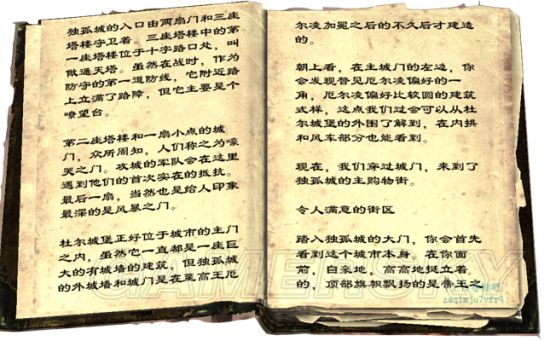 独孤城的入口由两扇门和三座
塔楼守卫着。三座塔楼中的第
一座塔楼位于十字路口处，叫
做通天塔。虽然在战时，作为
防守的第一道防线，它附近路
上立满了路障，但它主要是个
嘹望台。
第二座塔楼和一扇小点的城
门，众所周知，人们称之为嚎
哭之门。攻城的军队会在这里
遇到他们的首次实在的抵抗。
最后一扇，当然也是给人印象
最深的是风暴之门。
杜尔城堡正好位于城市的主门
之内，虽然它一直都是一座巨
大的有城墙的建筑，但独孤城
的外城墙和城门是在至高王厄
尔凌加冕之后的不久后才建造
的。
朝上看，在主城门的左边，你
会发现瞥见厄尔凌偏好的一
角，厄尔凌偏好比较圆的建筑
式样，这点我们过会可以从杜
尔城堡的外围了解到，在内拱
和风车部分也能看到。
现在，我们穿过城门，来到了
独孤城的主购物街。
令人满意的街区
踏入独孤城的大门，你会首先
看到这个城市本身，在你面
前，白亲地，高高地挺立着
的，顶部旗帜飘扬的是帝王之
GAMERSKY
zaq1mju7vfr4